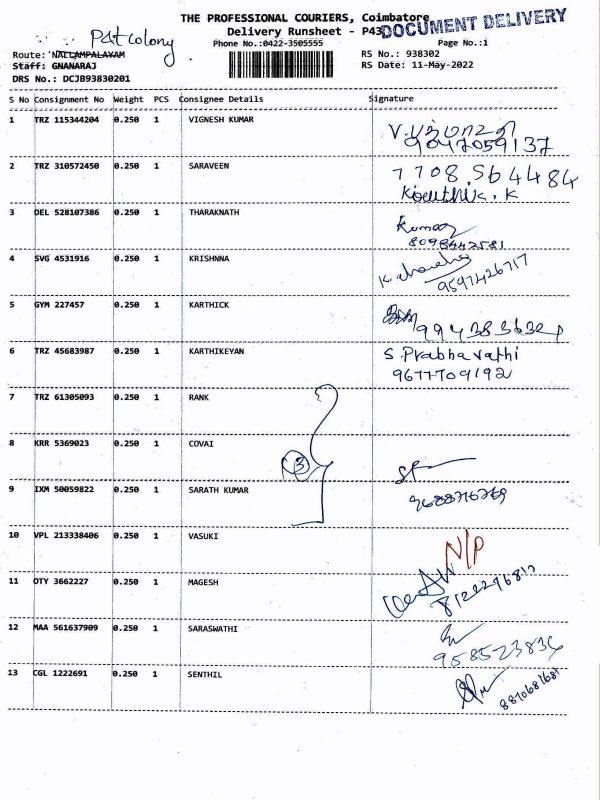 THE PROFESSIONAL COURIERS, Coimbatore
DOCUMENT DELIVERY
Delivery Runsheet - P43
P&T colony
Phone No.:0422-3505555
Page No.:1
Route: NALLAMPALAYAM
RS No.: 938302
Staff: GNANARAJ
RS Date: 11-May-2022
DRS No.: DCJB93830201
S No Consignment No Weight PCS Consignee Details Signature
1 TRZ 115344204 0.250 1 VIGNESH KUMAR
9047059137
2 TRZ 310572450 0.250 1 SARAVEEN 7708564484
Kouthik. K
3 DEL 528107386 0.250 1 THARAKNATH Kumar
4 SVG 4531916 0.250 1 KRISHNNA
9597426717
5 GYM 227457 0.250 1 KARTHICK
6 TRZ 45683987 0.250 1 KARTHIKEYAN S. Prabhavathi
9677709192
7 TRZ 61305093 0.250 1 RANK
8 KRR 5369023 0.250 1 COVAI
3
9 IXM 50059822 0.250 1 SARATH KUMAR
10 VPL 213338406 0.250 1 VASUKI
N/P
11 OTY 3662227 0.250 1 MAGESH
12 MAA 561637909 0.250 1 SARASWATHI
958523834
13 CGL 1222691 0.250 1 SENTHIL